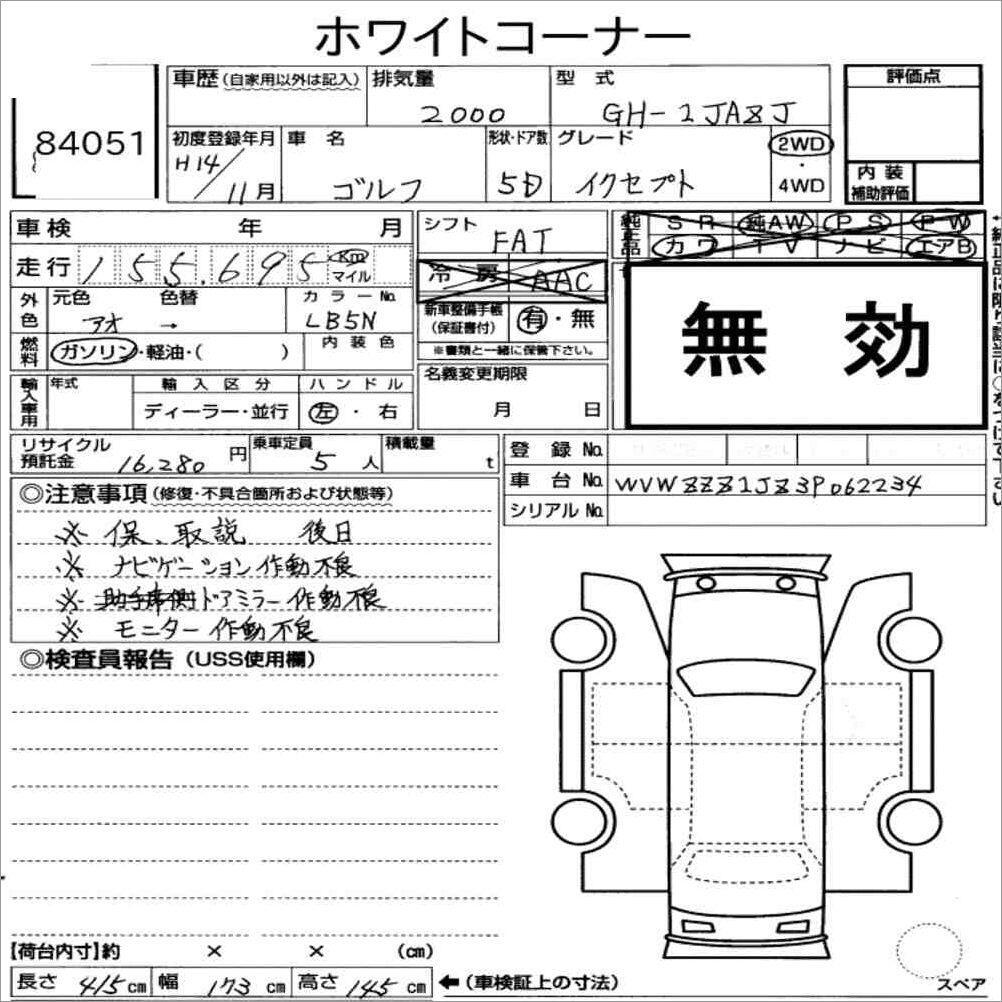 ホワイトコーナー
84051
車歴(自家用以外は記入) 排気量 型式 評価点
2000 GH-1JAZJ
初度登録年月 車名 形状・ドア数 グレード 2WD
H14/11月 ゴルフ 5D イクセプト ・ 4WD
内装補助評価
車検 年 月 シフト FAT
純正品 SR 純AW PS PW
カワ TV ナビ エアB
走行 155,695 Km マイル
冷房 AAC
外色 元色 色替 カラーNo.
アオ → LB5N
新車整備手帳(保証書付) 有・無
※書類と一緒に保管下さい。
無効
燃料 ガソリン・軽油・( ) 内装色
輸入車用 年式 輸入区分 ハンドル
ディーラー・並行 左・右
名義変更期限
月 日
リサイクル預託金 16,280円 乗車定員 5人 積載量 t
登録No.
車台No. WVWZZZ1JZ3P062234
シリアルNo.
◎注意事項(修復・不具合箇所および状態等)
※ 保、取説 後日
※ ナビゲーション作動不良
※ 助手席側ドアミラー作動不良
※ モニター作動不良
◎検査員報告(USS使用欄)
【荷台内寸】約 × × (cm)
長さ 415cm 幅 173cm 高さ 145cm ←(車検証上の寸法)
スペア